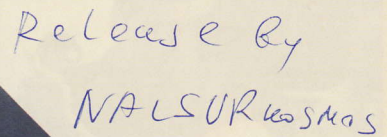 Release by
NALSURkosmos